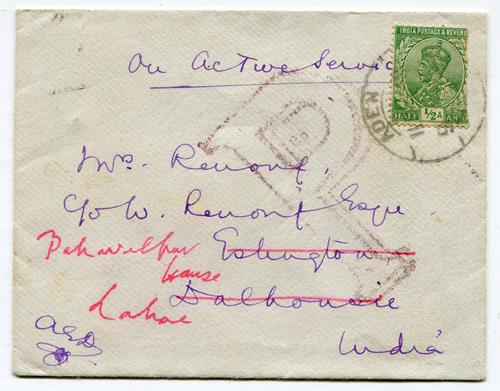 On Active Service
INDIA POSTAGE & REVENUE
HALF 1/2 A ANNA
ADEN
Mrs. Remont,
C/o W. Remont Esqre
Bahawalpur Eshington
House
Lahore Dalhousie
India